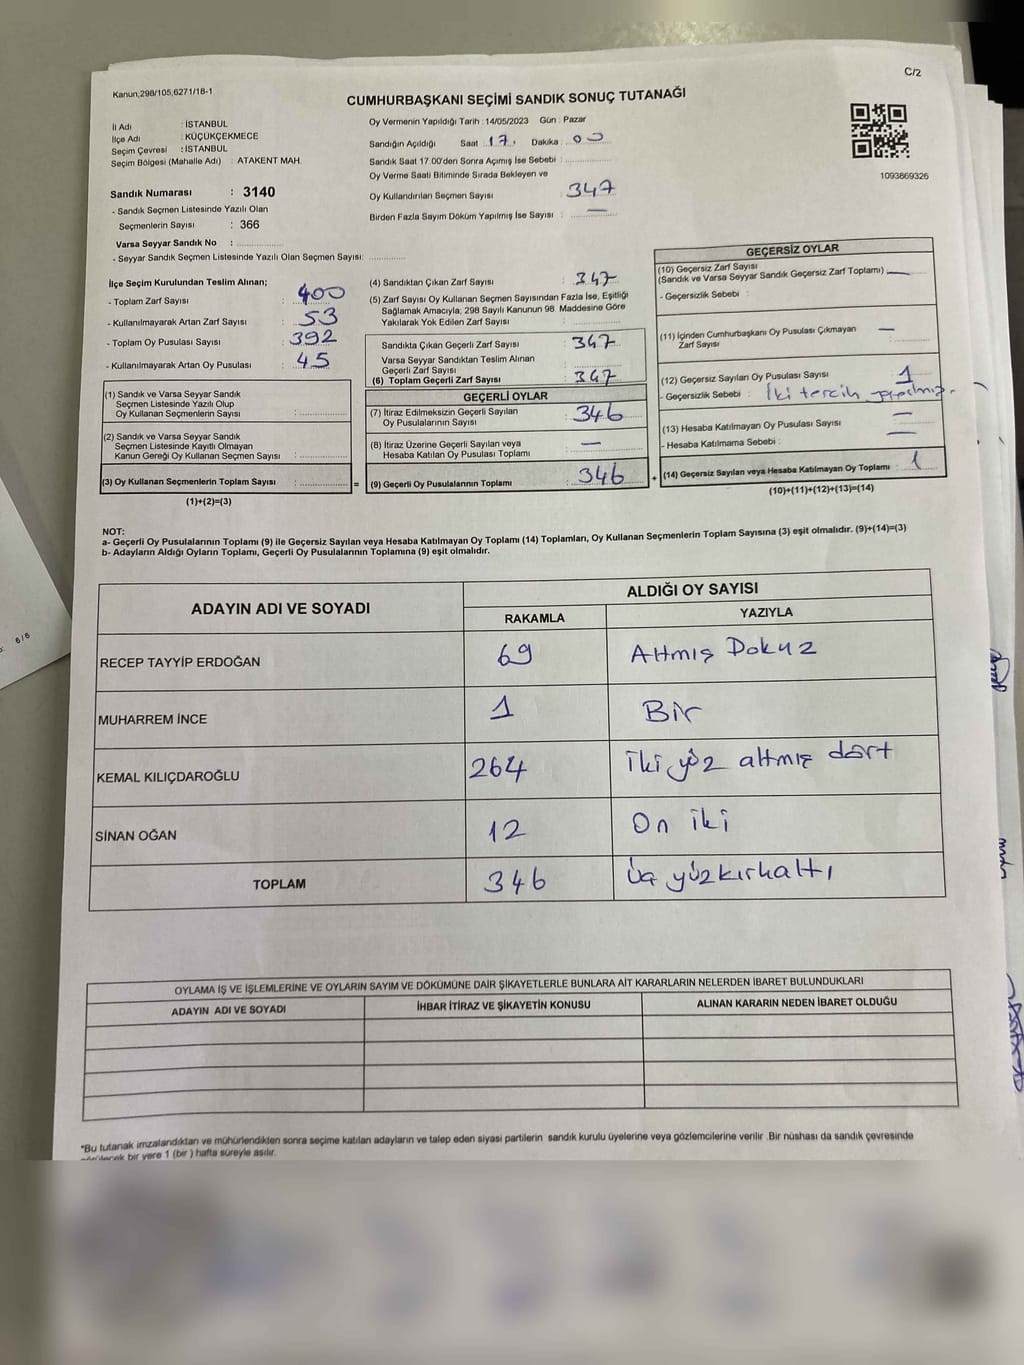 C/2
Kanun;298/105,6271/18-1
CUMHURBAŞKANI SEÇİMİ SANDIK SONUÇ TUTANAĞI
İl Adı : İSTANBUL
İlçe Adı : KÜÇÜKÇEKMECE
Seçim Çevresi : İSTANBUL
Seçim Bölgesi (Mahalle Adı) : ATAKENT MAH.
Sandık Numarası : 3140
- Sandık Seçmen Listesinde Yazılı Olan
Seçmenlerin Sayısı : 366
Varsa Seyyar Sandık No :
- Seyyar Sandık Seçmen Listesinde Yazılı Olan Seçmen Sayısı:
Oy Vermenin Yapıldığı Tarih : 14/05/2023 Gün : Pazar
Sandığın Açıldığı Saat 17. Dakika 00
Sandık Saat 17.00'den Sonra Açımış İse Sebebi :
Oy Verme Saati Bitiminde Sırada Bekleyen ve
Oy Kullandırılan Seçmen Sayısı : 347
Birden Fazla Sayım Döküm Yapılmış İse Sayısı : —
1093869326
İlçe Seçim Kurulundan Teslim Alınan;
- Toplam Zarf Sayısı : 400
- Kullanılmayarak Artan Zarf Sayısı : 53
- Toplam Oy Pusulası Sayısı : 392
- Kullanılmayarak Artan Oy Pusulası : 45
(1) Sandık ve Varsa Seyyar Sandık
Seçmen Listesinde Yazılı Olup
Oy Kullanan Seçmenlerin Sayısı :
(2) Sandık ve Varsa Seyyar Sandık
Seçmen Listesinde Kayıtlı Olmayan
Kanun Gereği Oy Kullanan Seçmen Sayısı :
(3) Oy Kullanan Seçmenlerin Toplam Sayısı :
(1)+(2)=(3)
=
(4) Sandıktan Çıkan Zarf Sayısı : 347
(5) Zarf Sayısı Oy Kullanan Seçmen Sayısından Fazla İse, Eşitliği
Sağlamak Amacıyla, 298 Sayılı Kanunun 98. Maddesine Göre
Yakılarak Yok Edilen Zarf Sayısı :
Sandıkta Çıkan Geçerli Zarf Sayısı : 347
Varsa Seyyar Sandıktan Teslim Alınan
Geçerli Zarf Sayısı :
(6) Toplam Geçerli Zarf Sayısı : 347
GEÇERLİ OYLAR
(7) İtiraz Edilmeksizin Geçerli Sayılan
Oy Pusulalarının Sayısı : 346
(8) İtiraz Üzerine Geçerli Sayılan veya
Hesaba Katılan Oy Pusulası Toplamı : —
(9) Geçerli Oy Pusulalarının Toplamı : 346
+
GEÇERSİZ OYLAR
(10) Geçersiz Zarf Sayısı
(Sandık ve Varsa Seyyar Sandık Geçersiz Zarf Toplamı) —
- Geçersizlik Sebebi :
(11) İçinden Cumhurbaşkanı Oy Pusulası Çıkmayan
Zarf Sayısı : —
(12) Geçersiz Sayılan Oy Pusulası Sayısı : 1
- Geçersizlik Sebebi : İki tercih yapılmış.
(13) Hesaba Katılmayan Oy Pusulası Sayısı : —
- Hesaba Katılmama Sebebi : —
(14) Geçersiz Sayılan veya Hesaba Katılmayan Oy Toplamı : 1
(10)+(11)+(12)+(13)=(14)
NOT:
a- Geçerli Oy Pusulalarının Toplamı (9) ile Geçersiz Sayılan veya Hesaba Katılmayan Oy Toplamı (14) Toplamları, Oy Kullanan Seçmenlerin Toplam Sayısına (3) eşit olmalıdır. (9)+(14)=(3)
b- Adayların Aldığı Oyların Toplamı, Geçerli Oy Pusulalarının Toplamına (9) eşit olmalıdır.
ADAYIN ADI VE SOYADI ALDIĞI OY SAYISI
RAKAMLA YAZIYLA
RECEP TAYYİP ERDOĞAN 69 Altmış Dokuz
MUHARREM İNCE 1 Bir
KEMAL KILIÇDAROĞLU 264 iki yüz altmış dört
SİNAN OĞAN 12 On iki
TOPLAM 346 Üç yüzkırkaltı
OYLAMA İŞ VE İŞLEMLERİNE VE OYLARIN SAYIM VE DÖKÜMÜNE DAİR ŞİKAYETLERLE BUNLARA AİT KARARLARIN NELERDEN İBARET BULUNDUKLARI
ADAYIN ADI VE SOYADI İHBAR İTİRAZ VE ŞİKAYETİN KONUSU ALINAN KARARIN NEDEN İBARET OLDUĞU
*Bu tutanak imzalandıktan ve mühürlendikten sonra seçime katılan adayların ve talep eden siyasi partilerin sandık kurulu üyelerine veya gözlemcilerine verilir .Bir nüshası da sandık çevresinde
bir yere 1 (bir ) hafta süreyle asılır.
6/6